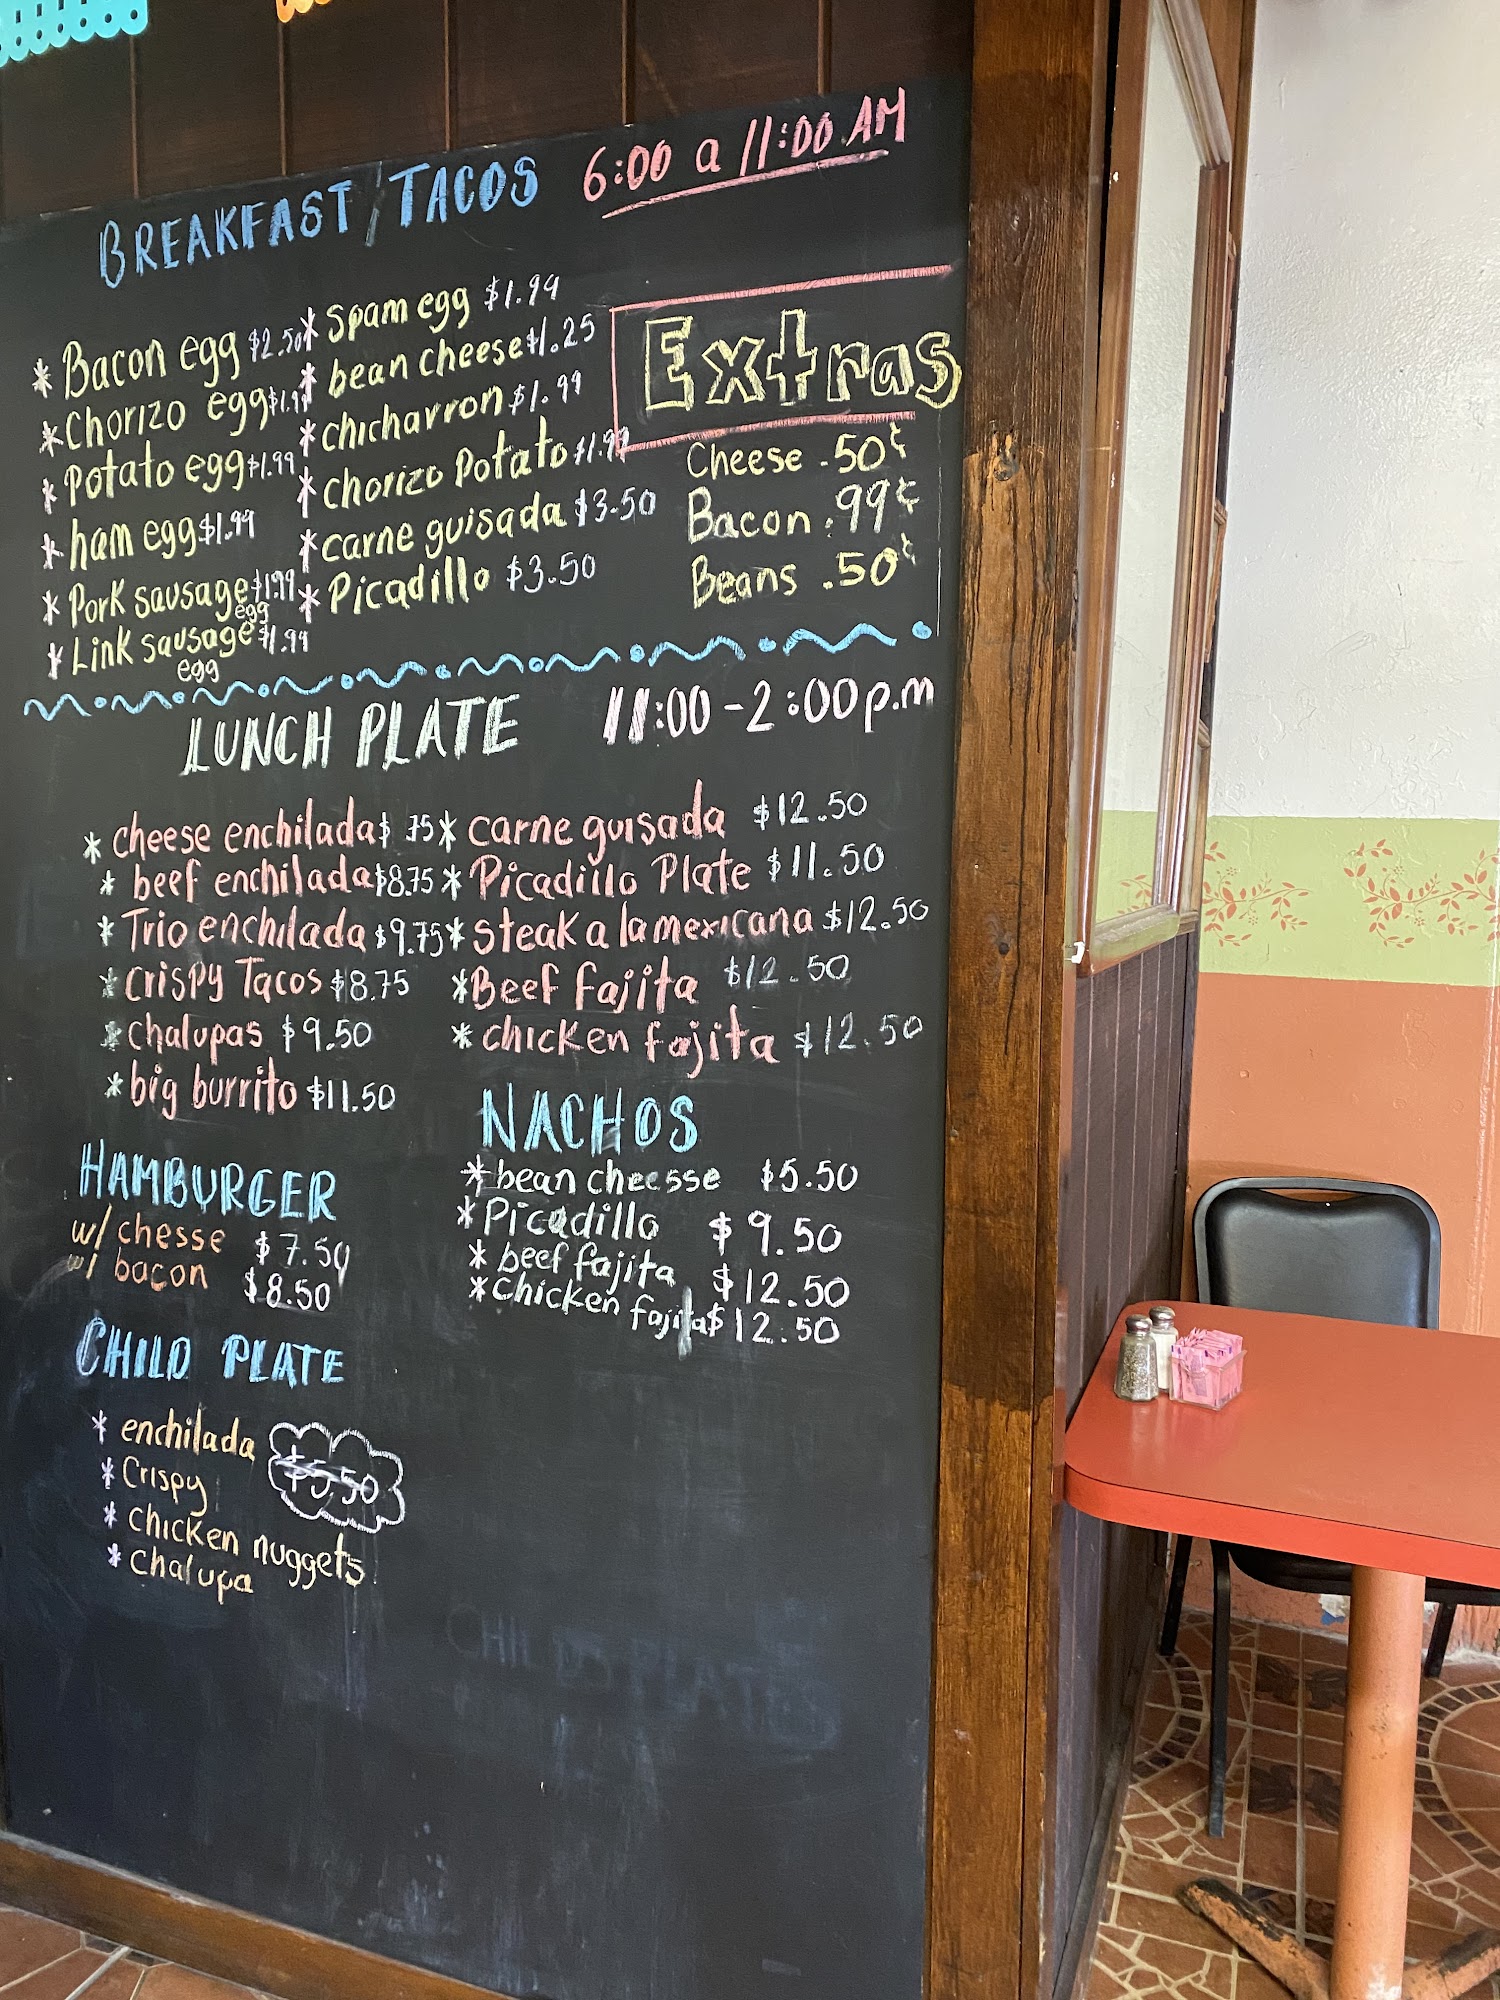 BREAKFAST TACOS 6:00 a 11:00 AM
* Bacon egg $2.50
* Chorizo egg $1.99
* Potato egg $1.99
* ham egg $1.99
* Pork sausage egg $1.99
* Link sausage egg $1.99
* Spam egg $1.99
* bean cheese $1.25
* chicharron $1.99
* chorizo Potato $1.99
* carne guisada $3.50
* Picadillo $3.50
Extras
Cheese .50¢
Bacon .99¢
Beans .50¢
LUNCH PLATE 11:00-2:00 p.m
* cheese enchilada $ 75
* beef enchilada $8.75
* Trio enchilada $9.75
* crispy Tacos $8.75
* chalupas $9.50
* big burrito $11.50
* carne guisada $12.50
* Picadillo Plate $11.50
* steak a la mexicana $12.50
* Beef fajita $12.50
* chicken fajita $12.50
HAMBURGER
w/ chesse $7.50
w/ bacon $8.50
NACHOS
* bean cheesse $5.50
* Picadillo $9.50
* beef fajita $12.50
* chicken fajita $12.50
CHILD PLATE
* enchilada
* Crispy
* chicken nuggets
* chalupa
$5.50